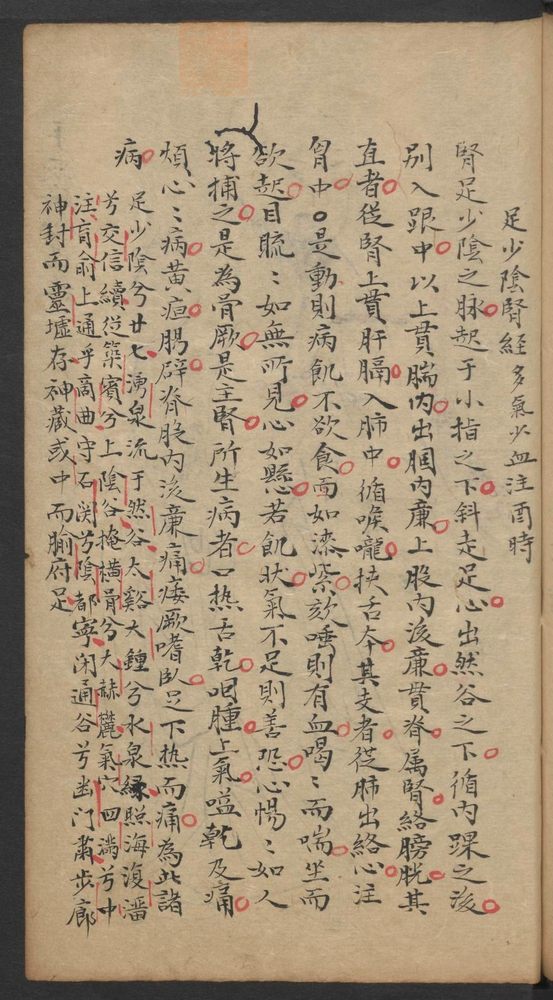 足少陰腎經多氣少血注酉時
腎足少陰之脉起于小指之下斜走足心出然谷之下循內踝之後
別入跟中以上貫腨內出膕內廉上股內後廉貫脊属腎絡膀胱其
直者從腎上貫肝膈入肺中循喉嚨挾舌本其支者從肺出絡心注
胷中是動則病飢不欲食面如漆柴欬唾則有血喝〻而喘坐而
欲起目䀮〻如無所見心如懸若飢狀氣不足則善恐心惕〻如人
將捕之是為骨厥是主腎所生病者口热舌乾咽腫上氣嗌乾及痛
煩心〻病黄疸腸辟脊股内後廉痛痿厥嗜臥足下热而痛為此諸
病
足少陰兮廿七湧泉流于然谷太谿大鍾兮水泉緣照海復溜
兮交信續從築賓兮上陰谷掩横骨兮大赫麓氣穴四滿兮中
注肓俞上通乎商曲守石関兮陰都寧闲通谷兮幽门肅步廊
神封而靈墟存神蔵或中而腧府足